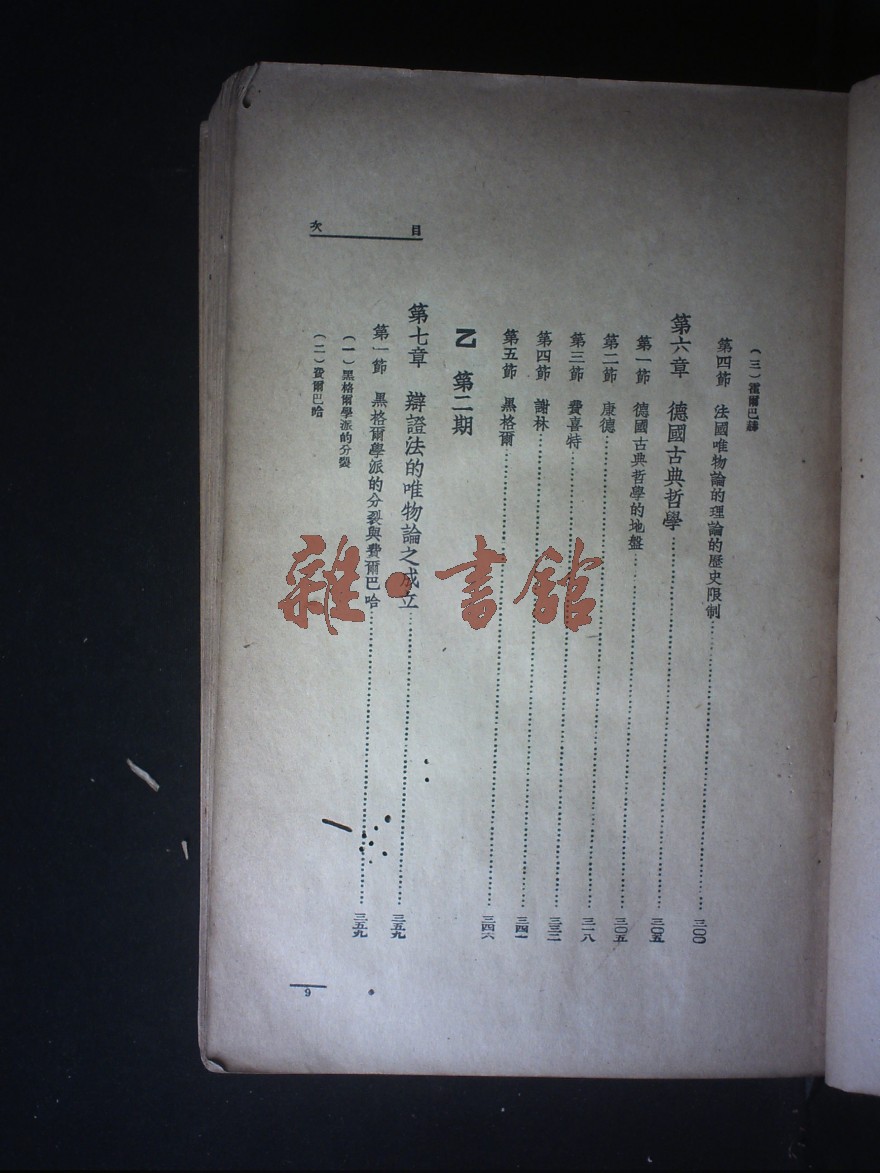 目次
(三)霍爾巴赫
第四節 法國唯物論的理論的歷史限制……三〇〇
第六章 德國古典哲學……三〇五
第一節 德國古典哲學的地盤……三〇五
第二節 康德……三一八
第三節 費喜特……三三二
第四節 謝林……三四一
第五節 黑格爾……三四六
乙 第二期
第七章 辯證法的唯物論之成立……三五九
第一節 黑格爾學派的分裂與費爾巴哈……三五九
(一)黑格爾學派的分裂
(二)費爾巴哈
9
雜·書館